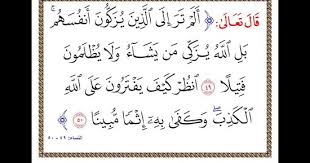 قَالَ تَعَالَى: ﴿ أَلَمْ تَرَ إِلَى ٱلَّذِينَ يُزَكُّونَ أَنفُسَهُمۚ
بَلِ ٱللَّهُ يُزَكِّي مَن يَشَآءُ وَلَا يُظْلَمُونَ
فَتِيلًا ٤٩ ٱنظُرْ كَيْفَ يَفْتَرُونَ عَلَى ٱللَّهِ
ٱلْكَذِبَۖ وَكَفَىٰ بِهِۦٓ إِثْمًا مُّبِينًا ٥٠ ﴾
النساء: ٤٩ - ٥٠